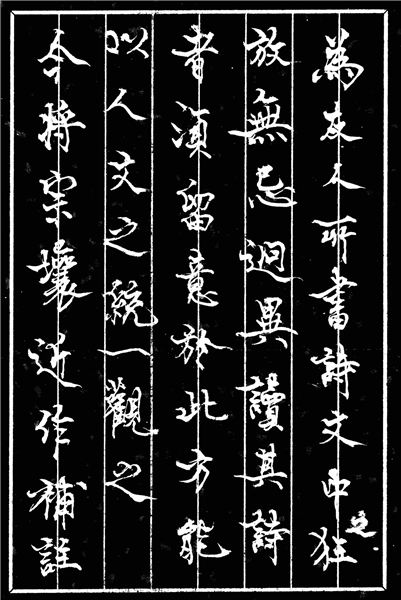 為友人所書詩文中狂
放無忌迥異讀其詩
者須留意於此方能
以人文之統一觀之
今將宗壤近作補註